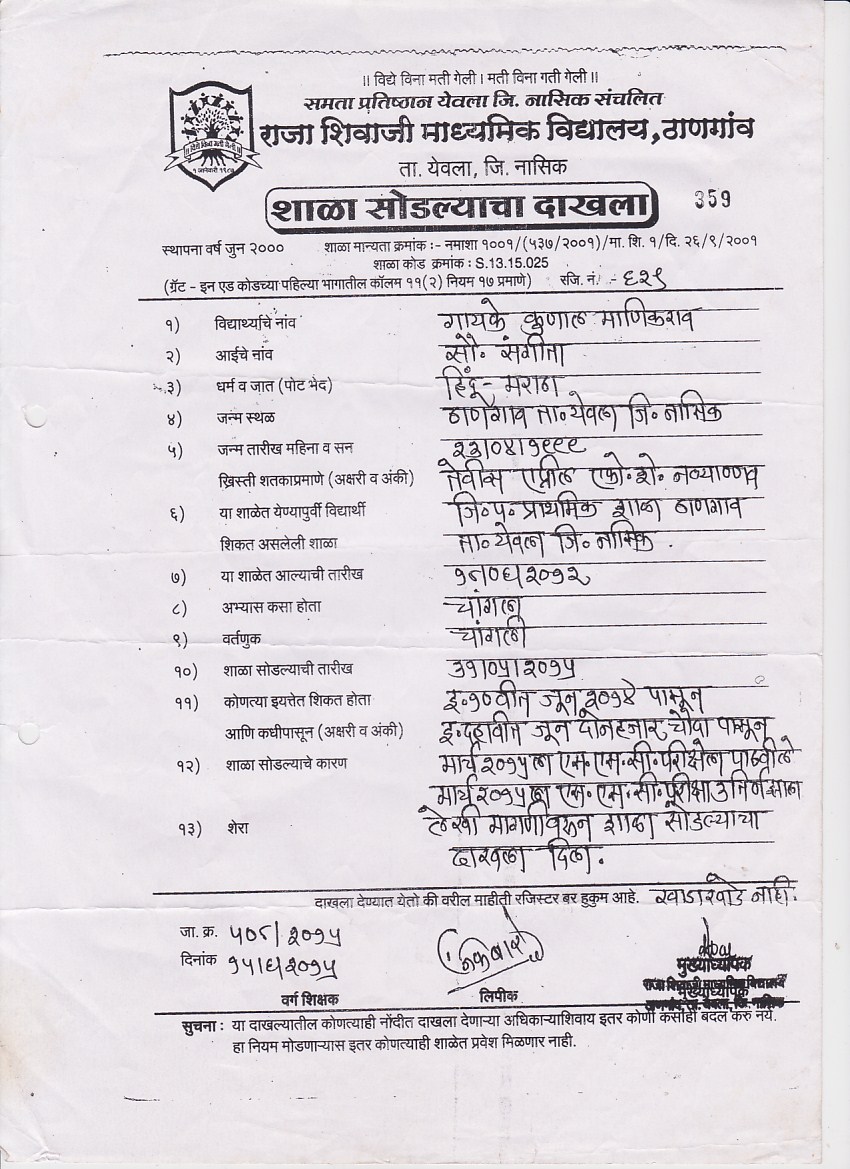 ॥ विद्ये विना मती गेली । मती विना गती गेली ॥
समता प्रतिष्ठान येवला जि. नासिक संचलित
राजा शिवाजी माध्यमिक विद्यालय, ठाणगांव
ता. येवला, जि. नासिक
शाळा सोडल्याचा दाखला 359
स्थापना वर्ष जुन २००० शाळा मान्यता क्रमांक :- नमाशा १००१/(५३७/२००१)/मा. शि. १/दि. २६/९/२००१
शाळा कोड क्रमांक : S.13.15.025
(ग्रॅंट - इन एड कोडच्या पहिल्या भागातील कॉलम ११(२) नियम १७ प्रमाणे) रजि. नं. :- ६२९
१) विद्यार्थ्याचे नांव गायके कुणाल माणिकराव
२) आईचे नांव सौ. संगीता
३) धर्म व जात (पोट भेद) हिंदू - मराठा
४) जन्म स्थळ ठाणगाव ता. येवला जि. नासिक
५) जन्म तारीख महिना व सन २३।०४।१९९९
ख्रिस्ती शतकाप्रमाणे (अक्षरी व अंकी) तेवीस एप्रील एको. शे. नव्याण्णव
६) या शाळेत येण्यापुर्वी विद्यार्थी जि. प. प्राथमिक शाळा ठाणगाव
शिकत असलेली शाळा ता. येवला जि. नासिक.
७) या शाळेत आल्याची तारीख १८।०६।२०१२
८) अभ्यास कसा होता चांगला
९) वर्तणुक चांगली
१०) शाळा सोडल्याची तारीख ३१।०५।२०१५
११) कोणत्या इयत्तेत शिकत होता इ. १० वीत जून २०१४ पासून
आणि कधीपासून (अक्षरी व अंकी) इ. दहावीत जून दोनहजार चौदा पासून
१२) शाळा सोडल्याचे कारण मार्च २०१५ ला एस. एस. सी. परीक्षेला पाठवीले
मार्च २०१५ ला एस. एस. सी. परीक्षा उत्तिर्ण झाला
१३) शेरा लेखी मागणीवरून शाळा सोडल्याचा
दाखला दिला.
दाखला देण्यात येतो की वरील माहीती रजिस्टर बर हुकुम आहे. खाडाखोड नाही.
जा. क्र. ५०८/२०१५
दिनांक १५।६।२०१५
मुख्याध्यापक
वर्ग शिक्षक लिपीक
सुचना : या दाखल्यातील कोणत्याही नोंदीत दाखला देणाऱ्या अधिकाऱ्याशिवाय इतर कोणी कसाही बदल करु नये.
हा नियम मोडणाऱ्यास इतर कोणत्याही शाळेत प्रवेश मिळणार नाही.